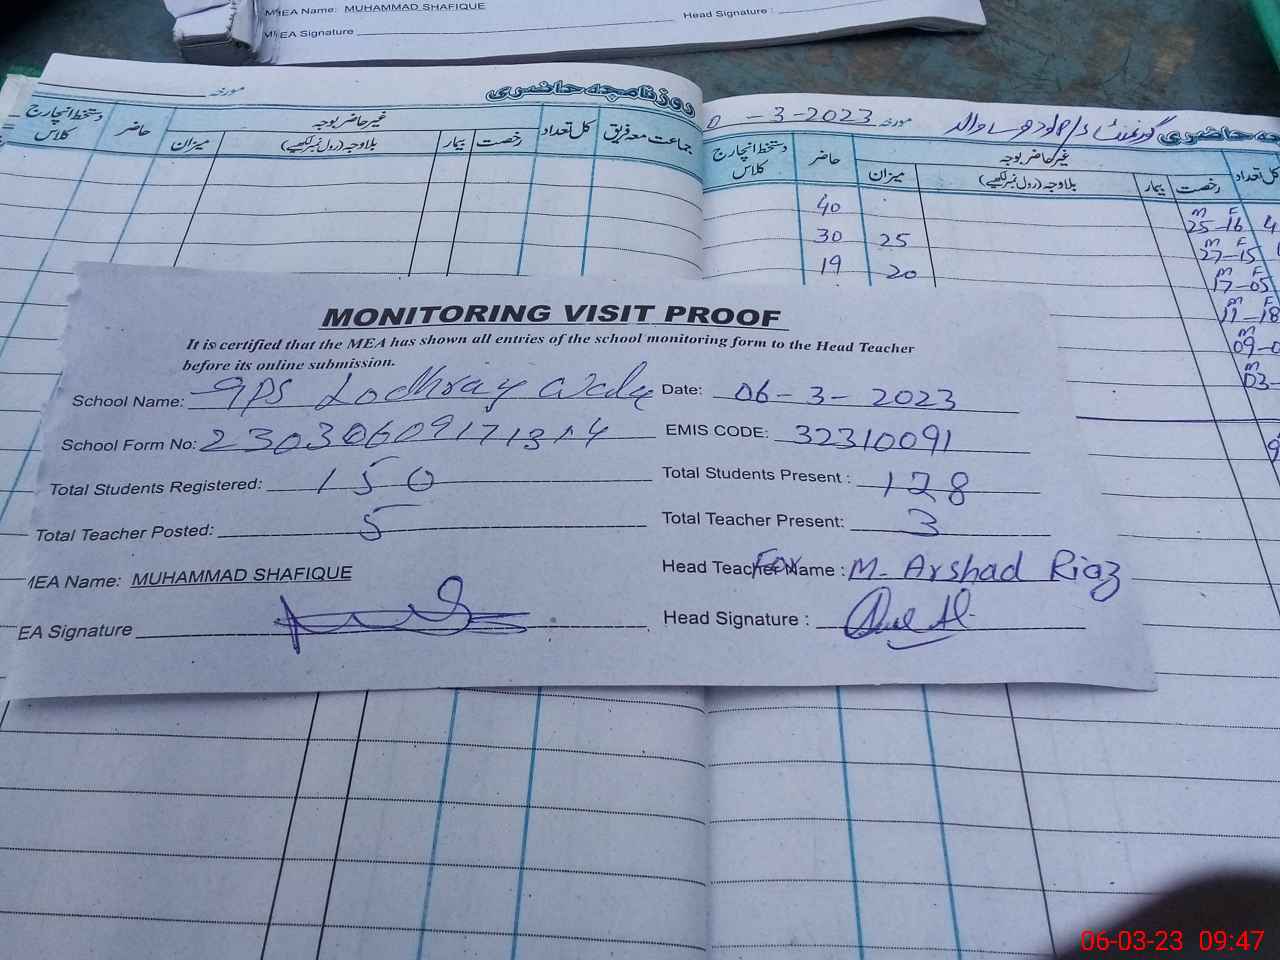 MEA Name: MUHAMMAD SHAFIQUE
Head Signature :
MEA Signature
روزنامچہ حاضری
مورخہ
دستخط انچارج کلاس
حاضر
غیر حاضر بوجہ
میزان
بلاوجہ (رول نمبر لکھیے)
بیمار
رخصت
کل تعداد
جماعت معہ فریق
-3-2023 مورخہ
حاضری
دستخط انچارج کلاس
حاضر
غیر حاضر بوجہ
میزان
بلاوجہ (رول نمبر لکھیے)
بیمار
رخصت
کل تعداد
40
M F
25-16
30 25
M F
27-15
19 20
M F
17-05
M F
11-18
M
09-0
M
03-
MONITORING VISIT PROOF
It is certified that the MEA has shown all entries of the school monitoring form to the Head Teacher
before its online submission.
School Name: GPS Lodhray Wala Date: 06-3-2023
School Form No: EMIS CODE: 32310091
Total Students Registered: 150 Total Students Present : 128
Total Teacher Posted: 5 Total Teacher Present: 3
MEA Name: MUHAMMAD SHAFIQUE Head Teacher Name : For M. Arshad Riaz
EA Signature Head Signature :
06-03-23 09:47